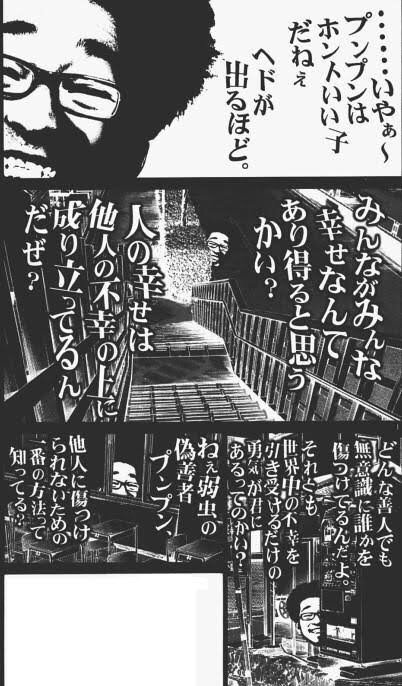 ……いやぁ～
プンプンは
ホントいい子
だねぇ
ヘドが
出るほど。
みんながみんな
幸せなんて
あり得ると思う
かい？
人の幸せは
他人の不幸の上に
成り立ってるん
だぜ？
どんな善人でも
無意識に誰かを
傷つけてるんだよ。
それとも
世界中の不幸を
引き受けるだけの
勇気が君に
あるってのかい？
ねぇ弱虫の
偽善者
プンプン、
他人に傷つけ
られないための
一番の方法って
知ってる？